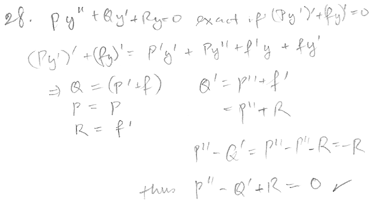 28. Py'' + Qy' + Ry = 0 exact if (Py')' + (fy)' = 0
(Py')' + (fy)' = P'y' + Py'' + f'y + fy'
⇒ Q = (P' + f) Q' = P'' + f'
P = P = P'' + R
R = f'
P'' - Q' = P'' - P'' - R = -R
thus P'' - Q' + R = 0 ✓